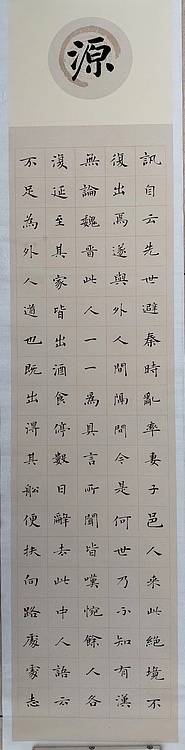 源
訊自云先世避秦時亂率妻子邑人来此絕境不
復出焉遂與外人間隔問今是何世乃不知有漢
無論魏晉此人一一為具言所聞皆嘆惋餘人各
復延至其家皆出酒食停數日辭去此中人語云
不足為外人道也既出得其船便扶向路處處志